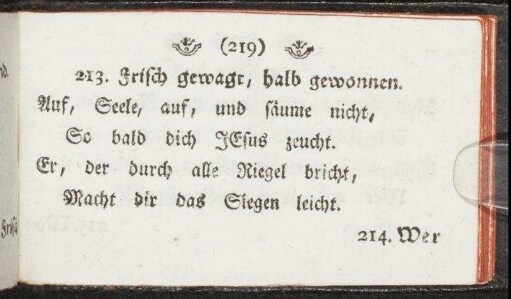 (219)
213. Frisch gewagt, halb gewonnen.
Auf, Seele, auf, und säume nicht,
So bald dich JEsus zeucht.
Er, der durch alle Riegel bricht,
Macht dir das Siegen leicht.
214. Wer